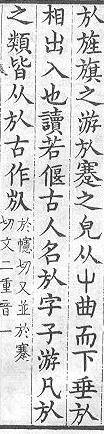 於旌旗之游於蹇之皃从屮曲而下垂於
相出入也讀若偃古人名於字子游凡於
之類皆从於古作㫃
於幰切又並於蹇
切文二重音一